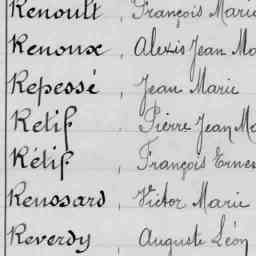 Renoult, François Marie
Renoux, Alexis Jean Ma
Repessé, Jean Marie
Retif, Pierre Jean Ma
Rétif, François Ernes
Reussard, Victor Marie
Reverdy, Auguste Léon